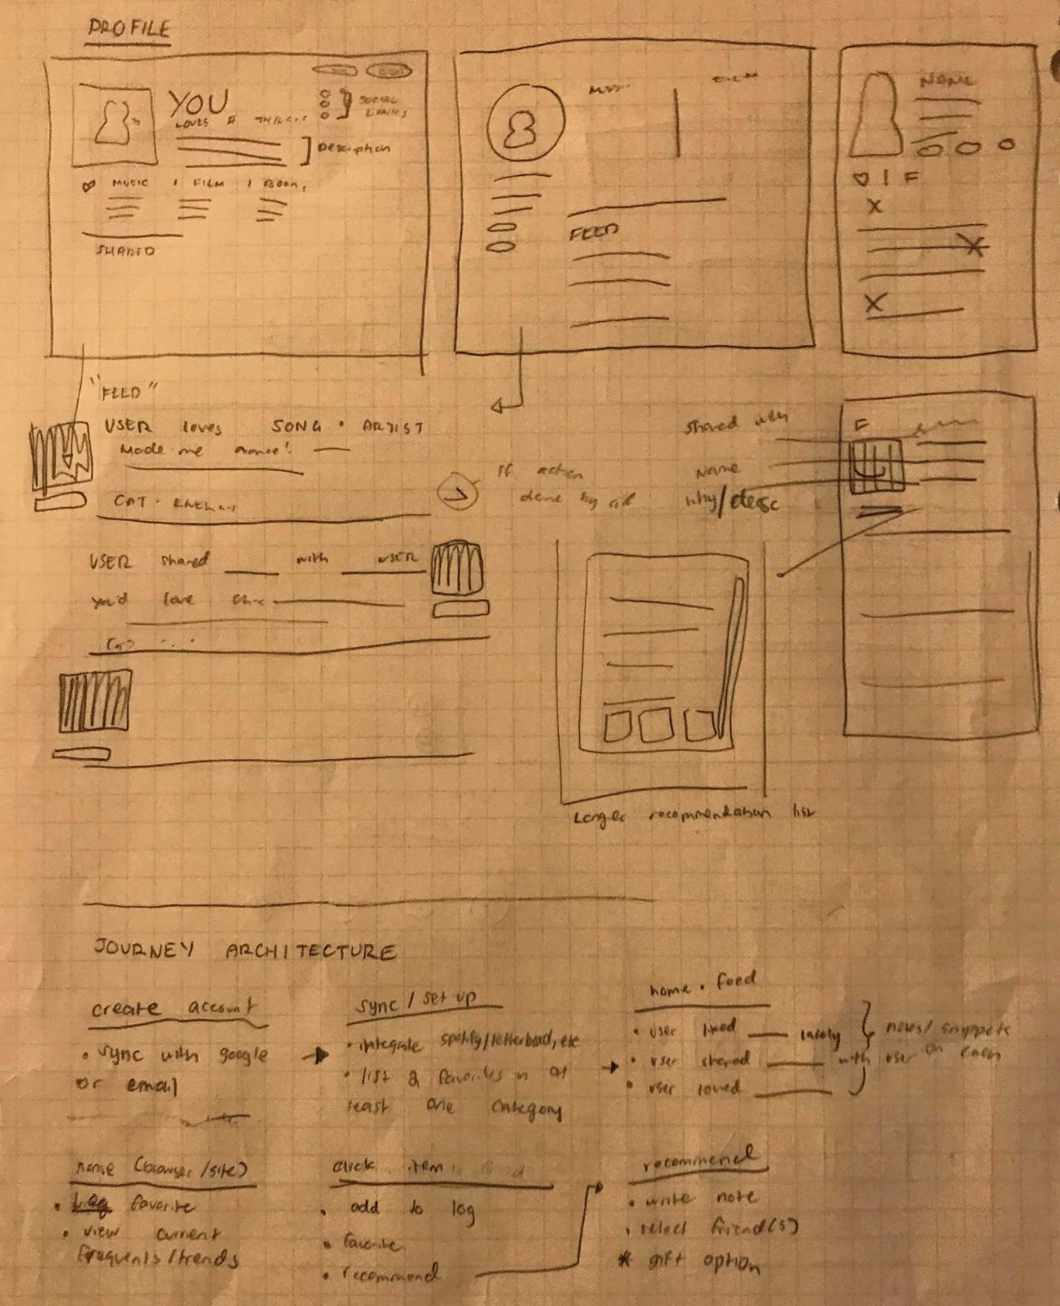 PROFILE
YOU
LOVES
SOCIAL
LINKS
Description
MUSIC | FILM | BOOKS
SHARED
FEED
NAME
F
"FEED"
USER loves SONG • ARTIST
Made me dance!
CAT •
If action
done by
USER shared ___ with ___ USER
you'd love this
shared
Name
why/desc
F
Longer recommendation list
JOURNEY ARCHITECTURE
create account
• sync with google
or email
sync / set up
• integrate spotify/letterboxd, etc
• list 2 favorites in at
least one category
home • feed
• user liked ___ lately
• user shared ___ with user
• user loved ___
notes/snippets
on each
home (browser/site)
• Log favorite
• view current
frequents/trends
click item
• add to log
• favorite
• recommend
recommend
• write note
• select friend(s)
* gift option